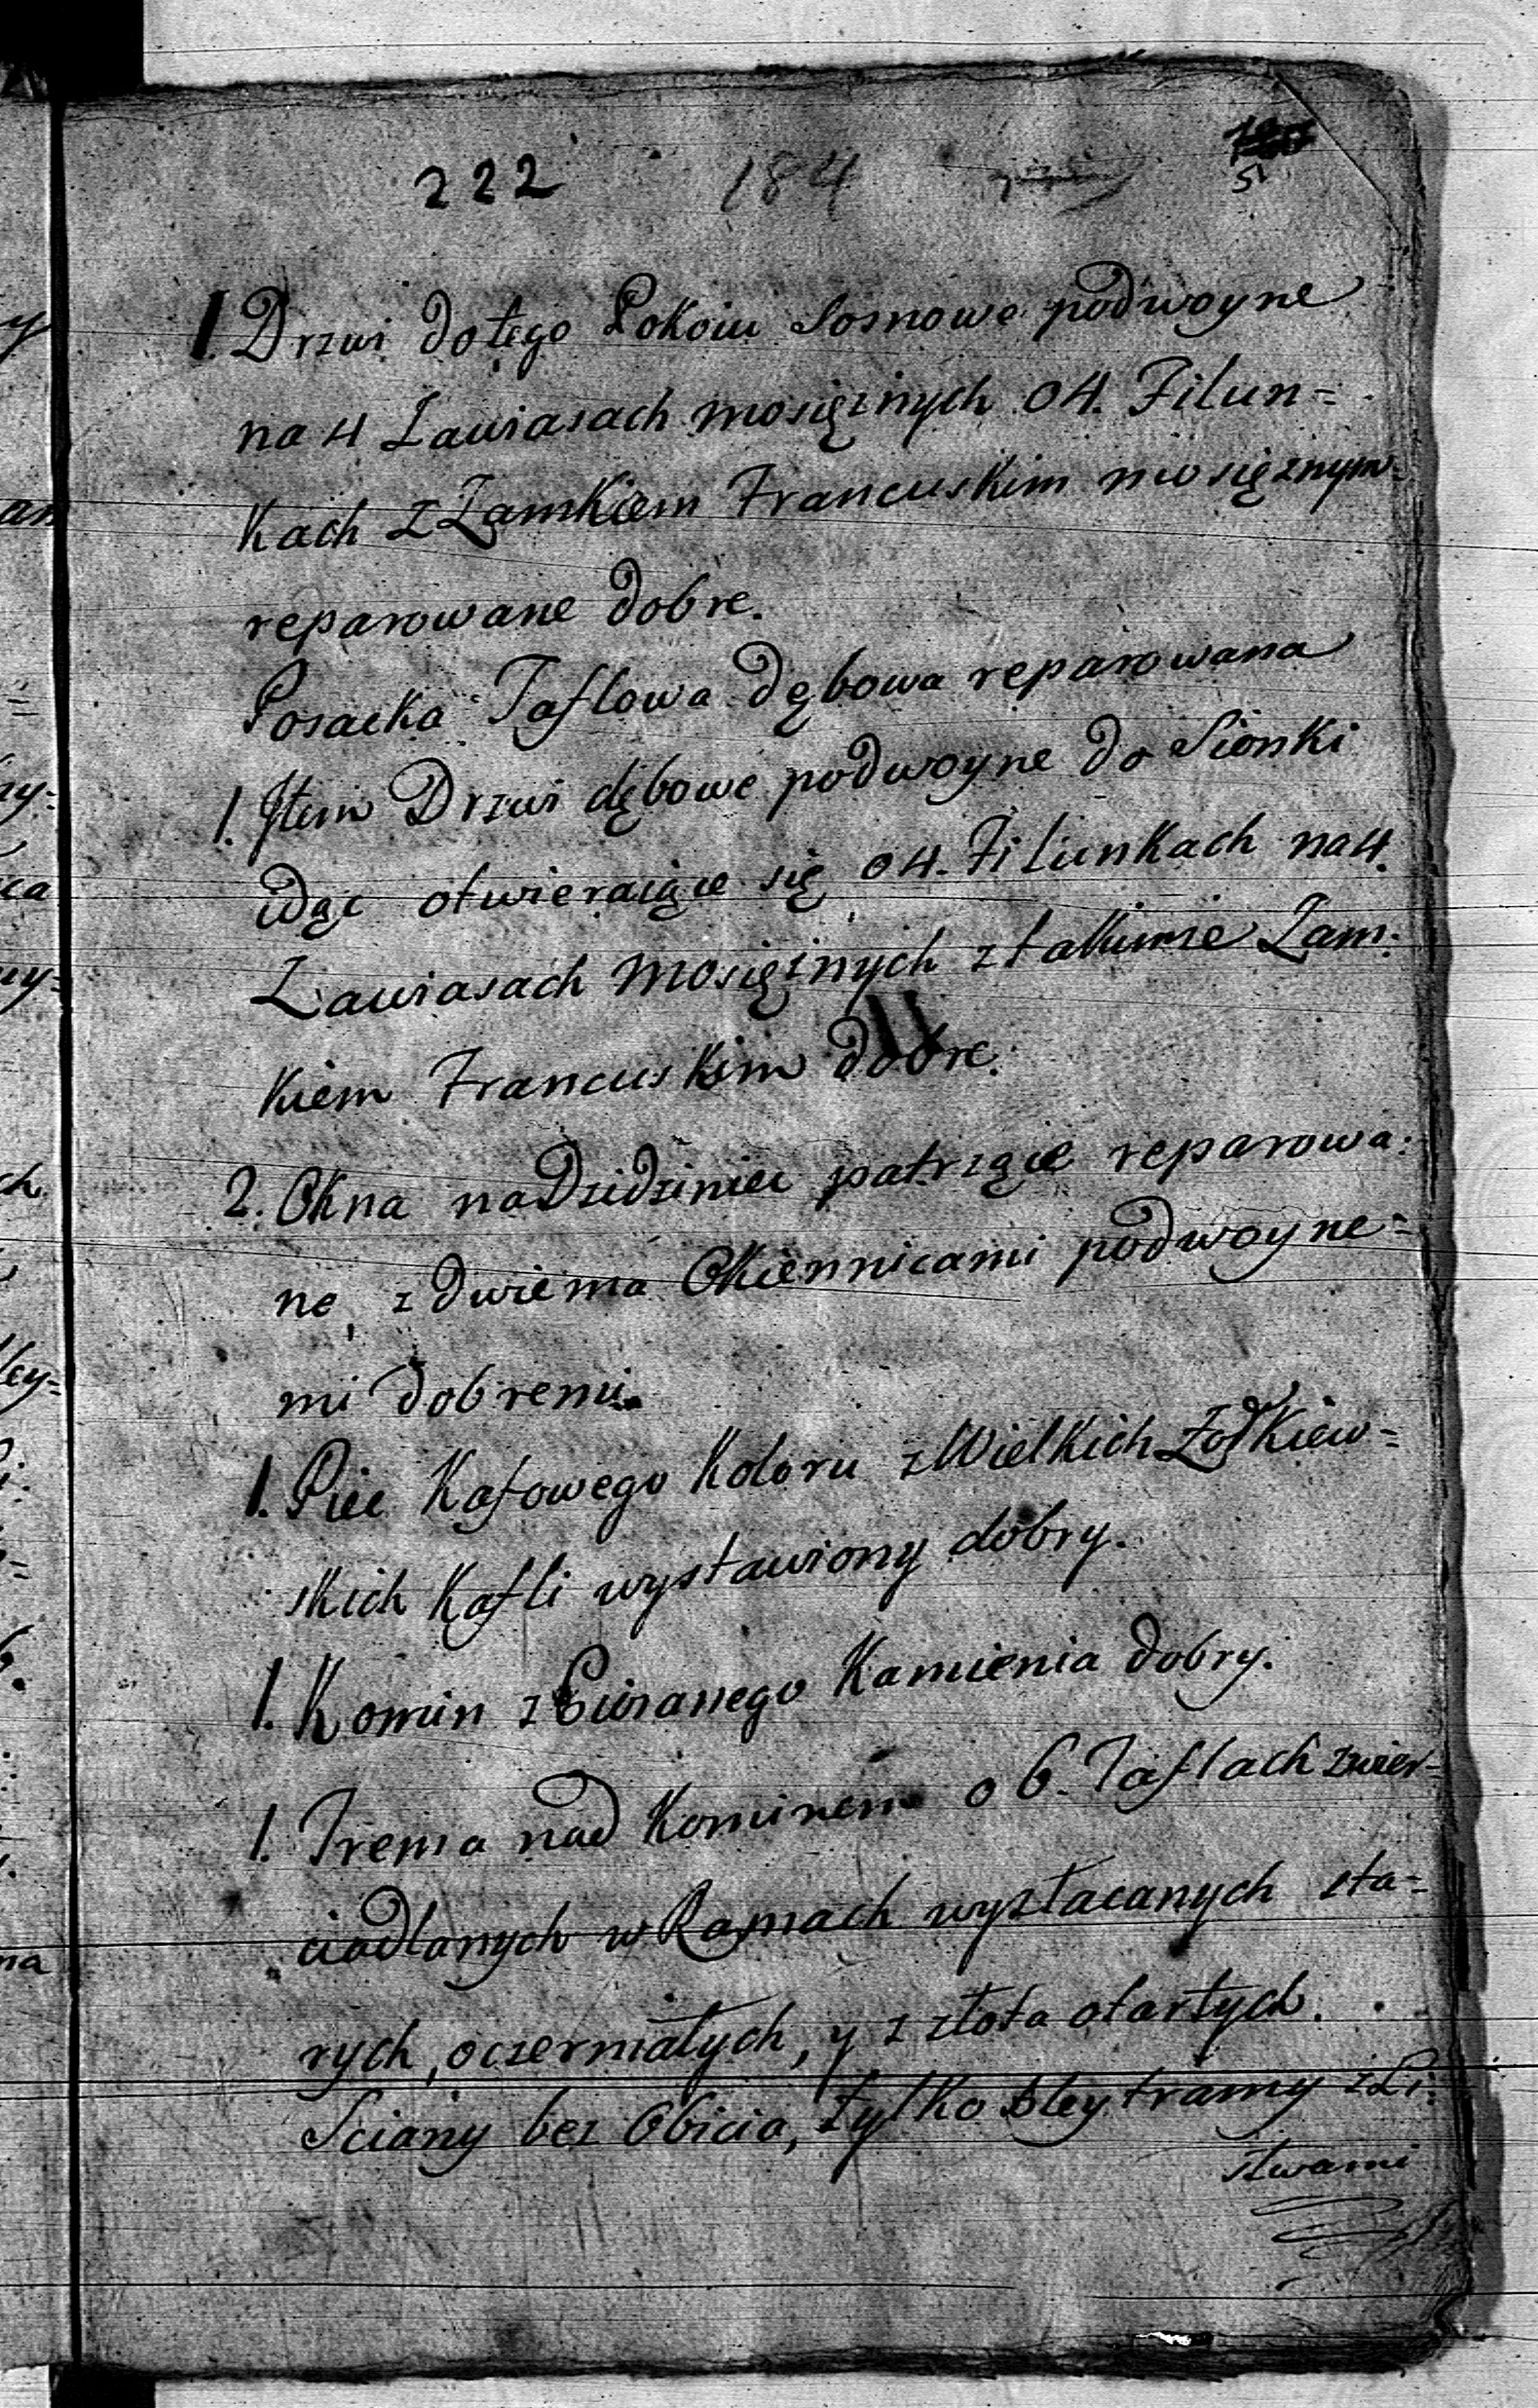 222 184 5
1. Drzwi do tego Pokoiu Sosnowe podwoyne
na 4 Zawiasach mosiężnych o 4. Filun=
kach z Zamkiem Francuskim mosiężnym
reparowane dobre.
Posacka Taflowa dębowa reparowana
1. Item Drzwi dębowe podwoyne do Sionki
idąc otwieraiące się o 4. Filunkach na 4.
Zawiasach Mosiężnych z takimże Zam:
kiem Francuskim dobre.
2. Okna na Dzidziniec patrzące reparowa:
ne, z dwiema Okiennicami podwoyne=
mi dobremi.
1. Piec Kafowego Koloru z Wielkich Żołkiew=
skich Kafli wystawiony dobry.
1. Komin z Ciosanego Kamienia dobry.
1. Trema nad Kominem o 6. Taflach zwier=
ciadlanych w Ramach wyzłacanych sta=
rych, oczerniałych, y z złota otartych.
Sciany bez Obicia, tylko Bleytramy z Li:
stwami